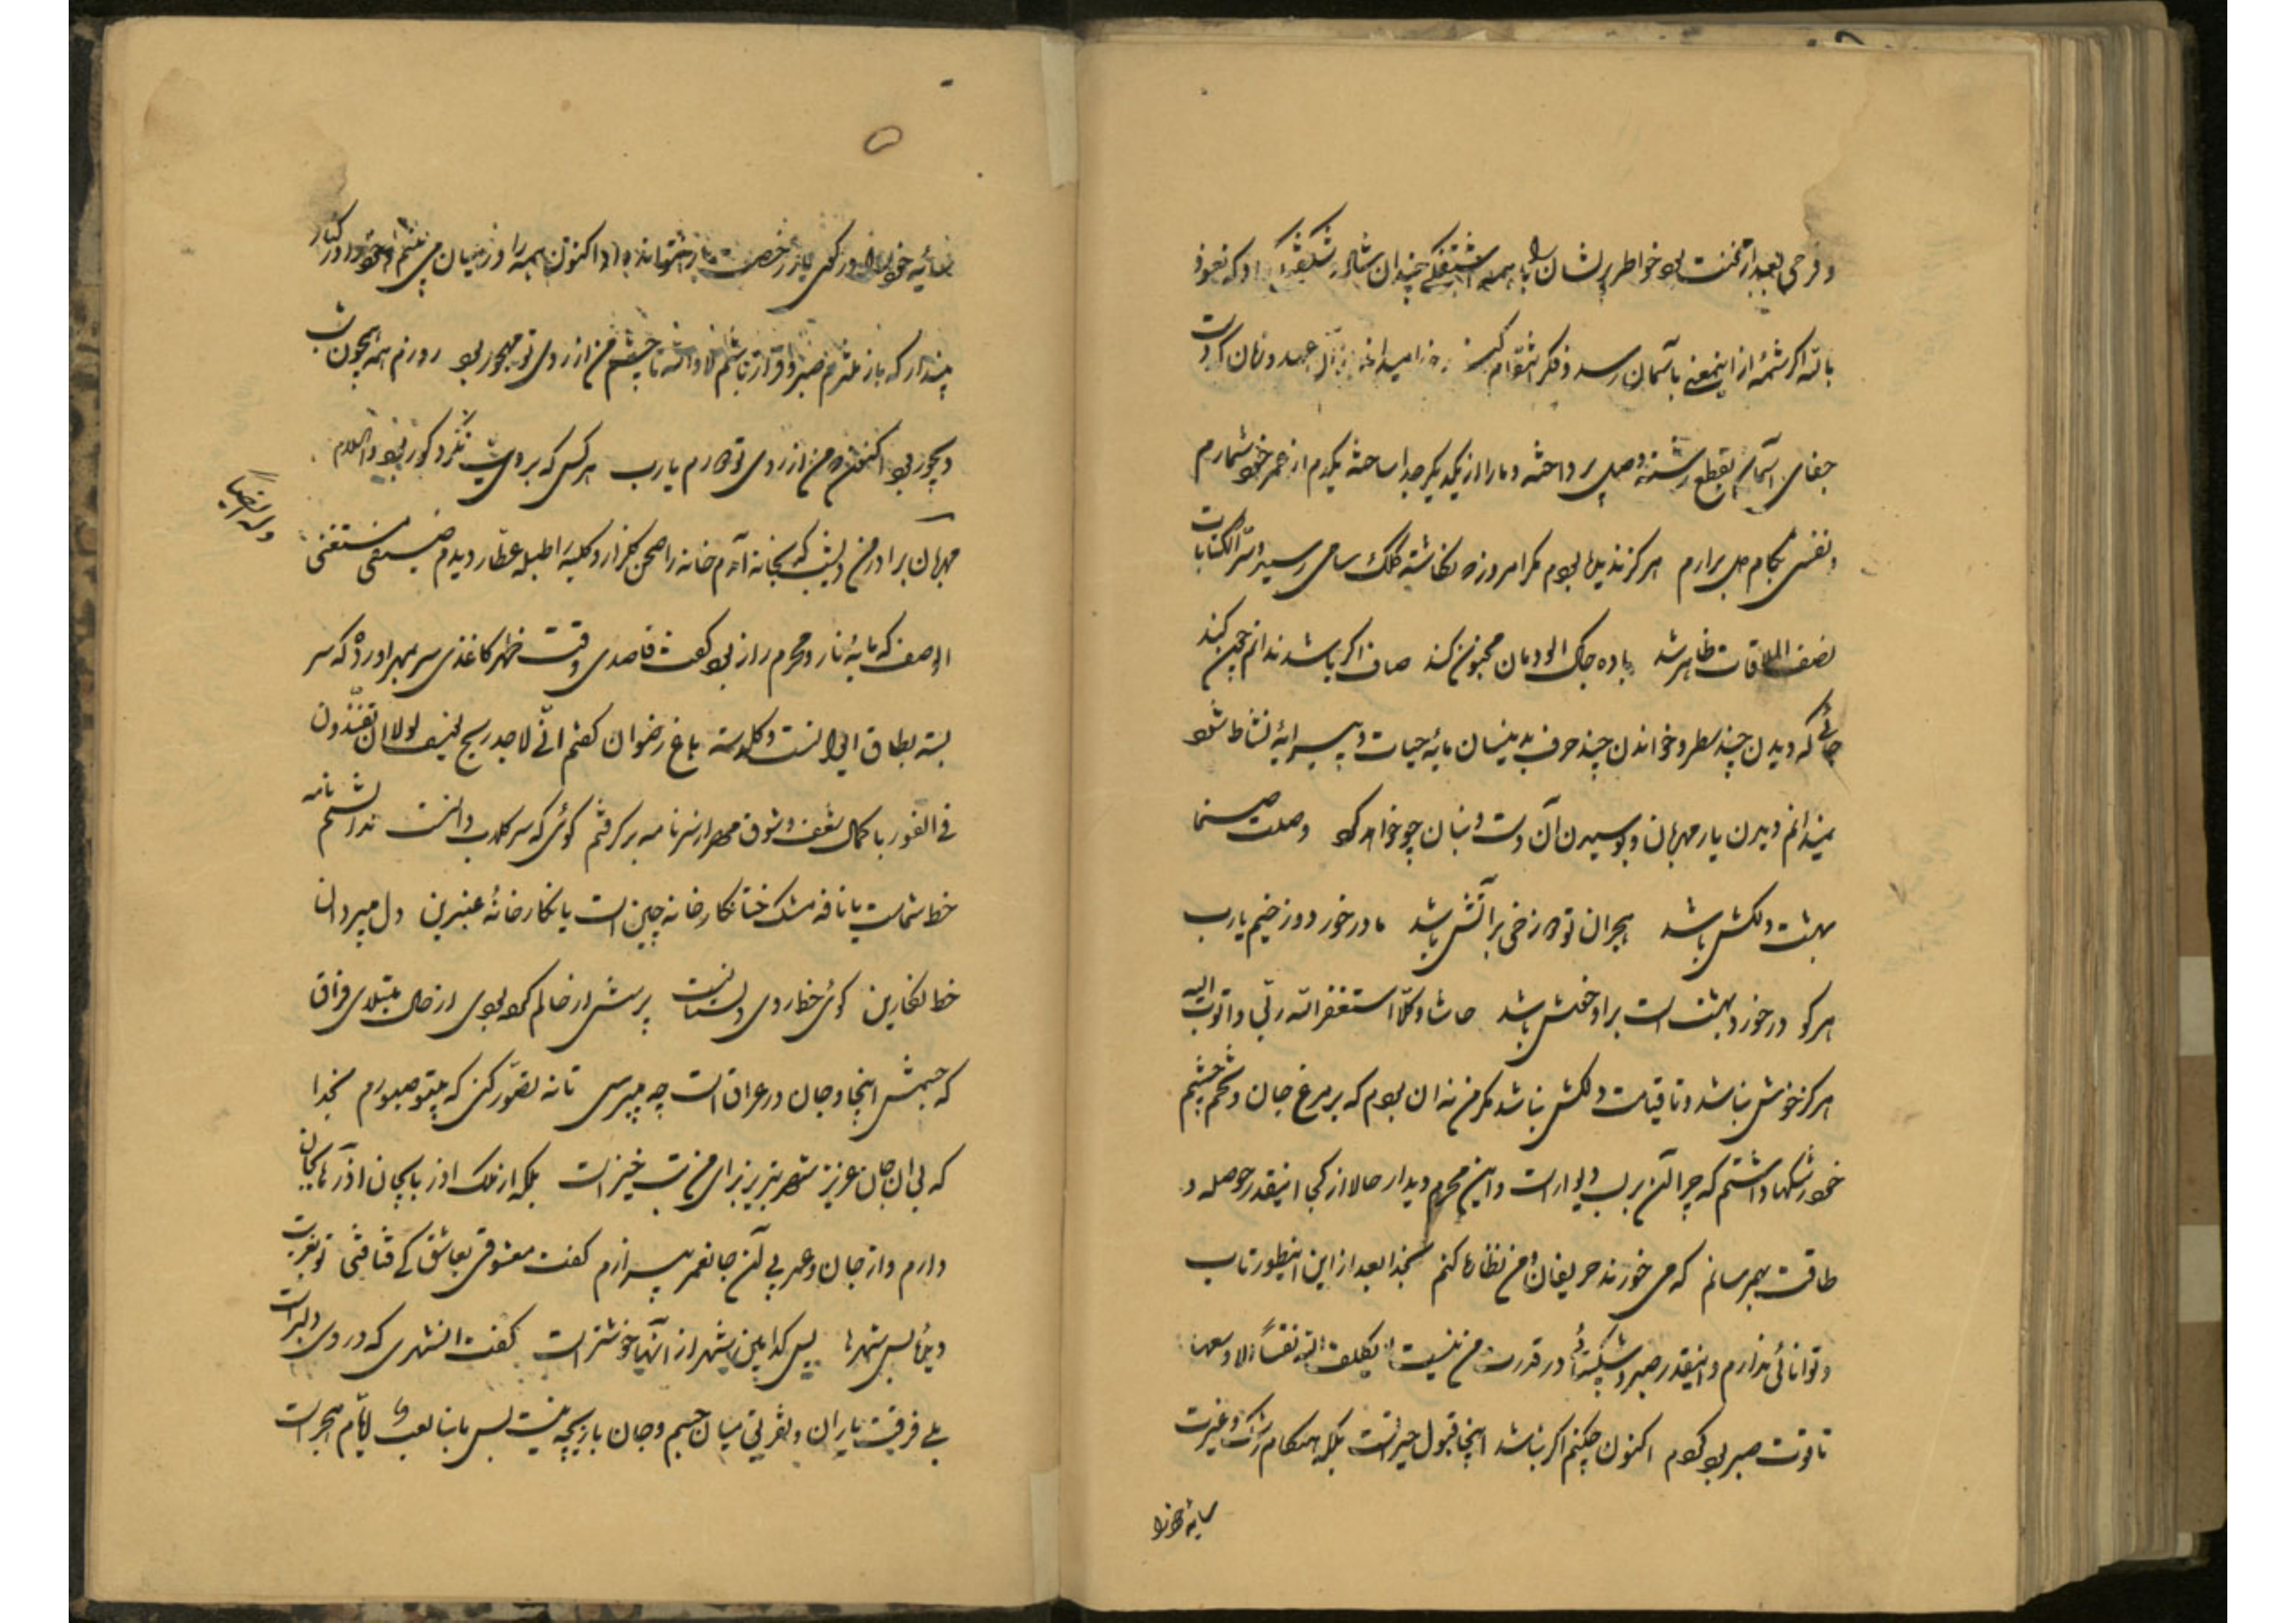 و فرحی بعد از محنت بود خواطر پریشان را با همه آشفتگی چندان شاد و شکفته کرد که نعوذ
بالله اگر شمهٔ از اینمعنی بآسمان رسد و فکر انتقام کند زیرا میدانم عهد و زمان کردست
جفای آسمان بقطع رشته وصل پرداخته و ما را از یکدیگر جدا ساخته یکدم از عمر خود شمارم
و نفسی بکام دل برارم هرگز ندیده بودم مگر امروز که نگاشته کلک سامی رسید و سرّ الکتابت
نصف الملاقات ظاهر شد باده خاک آلودمان مجنون کند صاف اگر باشد ندانم چون کند
جائی که دیدن چند سطر و خواندن چند حرف بدینسان مایهٔ حیات و پیرایهٔ نشاط شود
نمیدانم دیدن یار مهربان و بوسیدن آن دست و بنان چو خواهد کرد وصلت صنما
بهشت دلکش باشد هجران تو دوزخی پر آتش باشد ما در خور دوزخیم یارب
هرکو در خورد بهشت است برا و خوش باشد حاشا و کلا استغفر الله ربی و اتوب الیه
هرگز خوش نباشد و تا قیامت دلکش نباشد مگر من نه ان بودم که بر مرغ جان و تخم چشم
خود رشکها داشتم که چرا آن بر لب دیوار است و این محرم دیدار حالا از کجا اینقدر حوصله و
طاقت بهم رسانم که می خورند حریفان و من نظاره کنم بخدا بعد از این اینطور تاب
و توانائی ندارم و اینقدر صبر و شکیبائی در قدرت من نیست لا یکلف الله نفساً الا وسعها
تا قوت صبر بود کردم اکنون چکنم اگر نباشد اینجا قبول حیرتست بلکه هنگام رشک و غیرت
سایهٔ خود را
سایهٔ خود را در کوی یار رخصت بار نتوانم داد اکنون همه را در میان می بینم و خود را در کنار
پندار که باز ملتزم صبر و قرار باشم لا والله تا چشم من از روی تو مهجور بود روزم همه همچون شب
دیجور بود اکنون که من از روی تو دورم یارب هر کس که برویت نگرد کور بود والسلام
وله ایضاً
مهربان برادر من دیشب که بخانه آمدم خانه را صحن گلزار و کلبه را طبله عطار دیدم ضیفی مستغنی
الوصف که مایهٔ ناز و محرم راز بود گفت قاصدی وقت ظهر کاغذی سر بمهر آورده که سر
بسته بطاق ایوانست و گلدسته باغ رضوان گفتم انّی لاجد ریح یوسف لولا ان تفنّدون
فی الفور با کمال شعف و شوق مهر از سر نامه برگرفتم گوئی که سر گلاب دانست ندانستم نامه
خط شماست یا نافه مشک ختا نگارخانه چین است یا نگارخانهٔ عنبرین دل میبرد ان
خط نگارین گوئی خط روی دلستانست پرسش از حالم کرده بودی از حال مبتلای فراق
که جسمش اینجا و جان در عراق است چه میپرسی تا نه تصوّر کنی که بیتو صبورم بخدا
که بی ان جان عزیز شهر تبریز برای من تب خیز است بلکه از ملک اذربایجان اذرها بجان
دارم و از جان و عمر بی آن جان عمر بیزارم گفت معشوقی بعاشق کی فتا فتی تو بغربت
دیدهٔ بس شهرها پس کدامین شهر از آنها خوشتر است گفت انشهری که در وی دلبر است
بلی فرقت یاران و تفریق میان جسم و جان بازیچه نیست لیس ما بنا لعب ایام هجر است